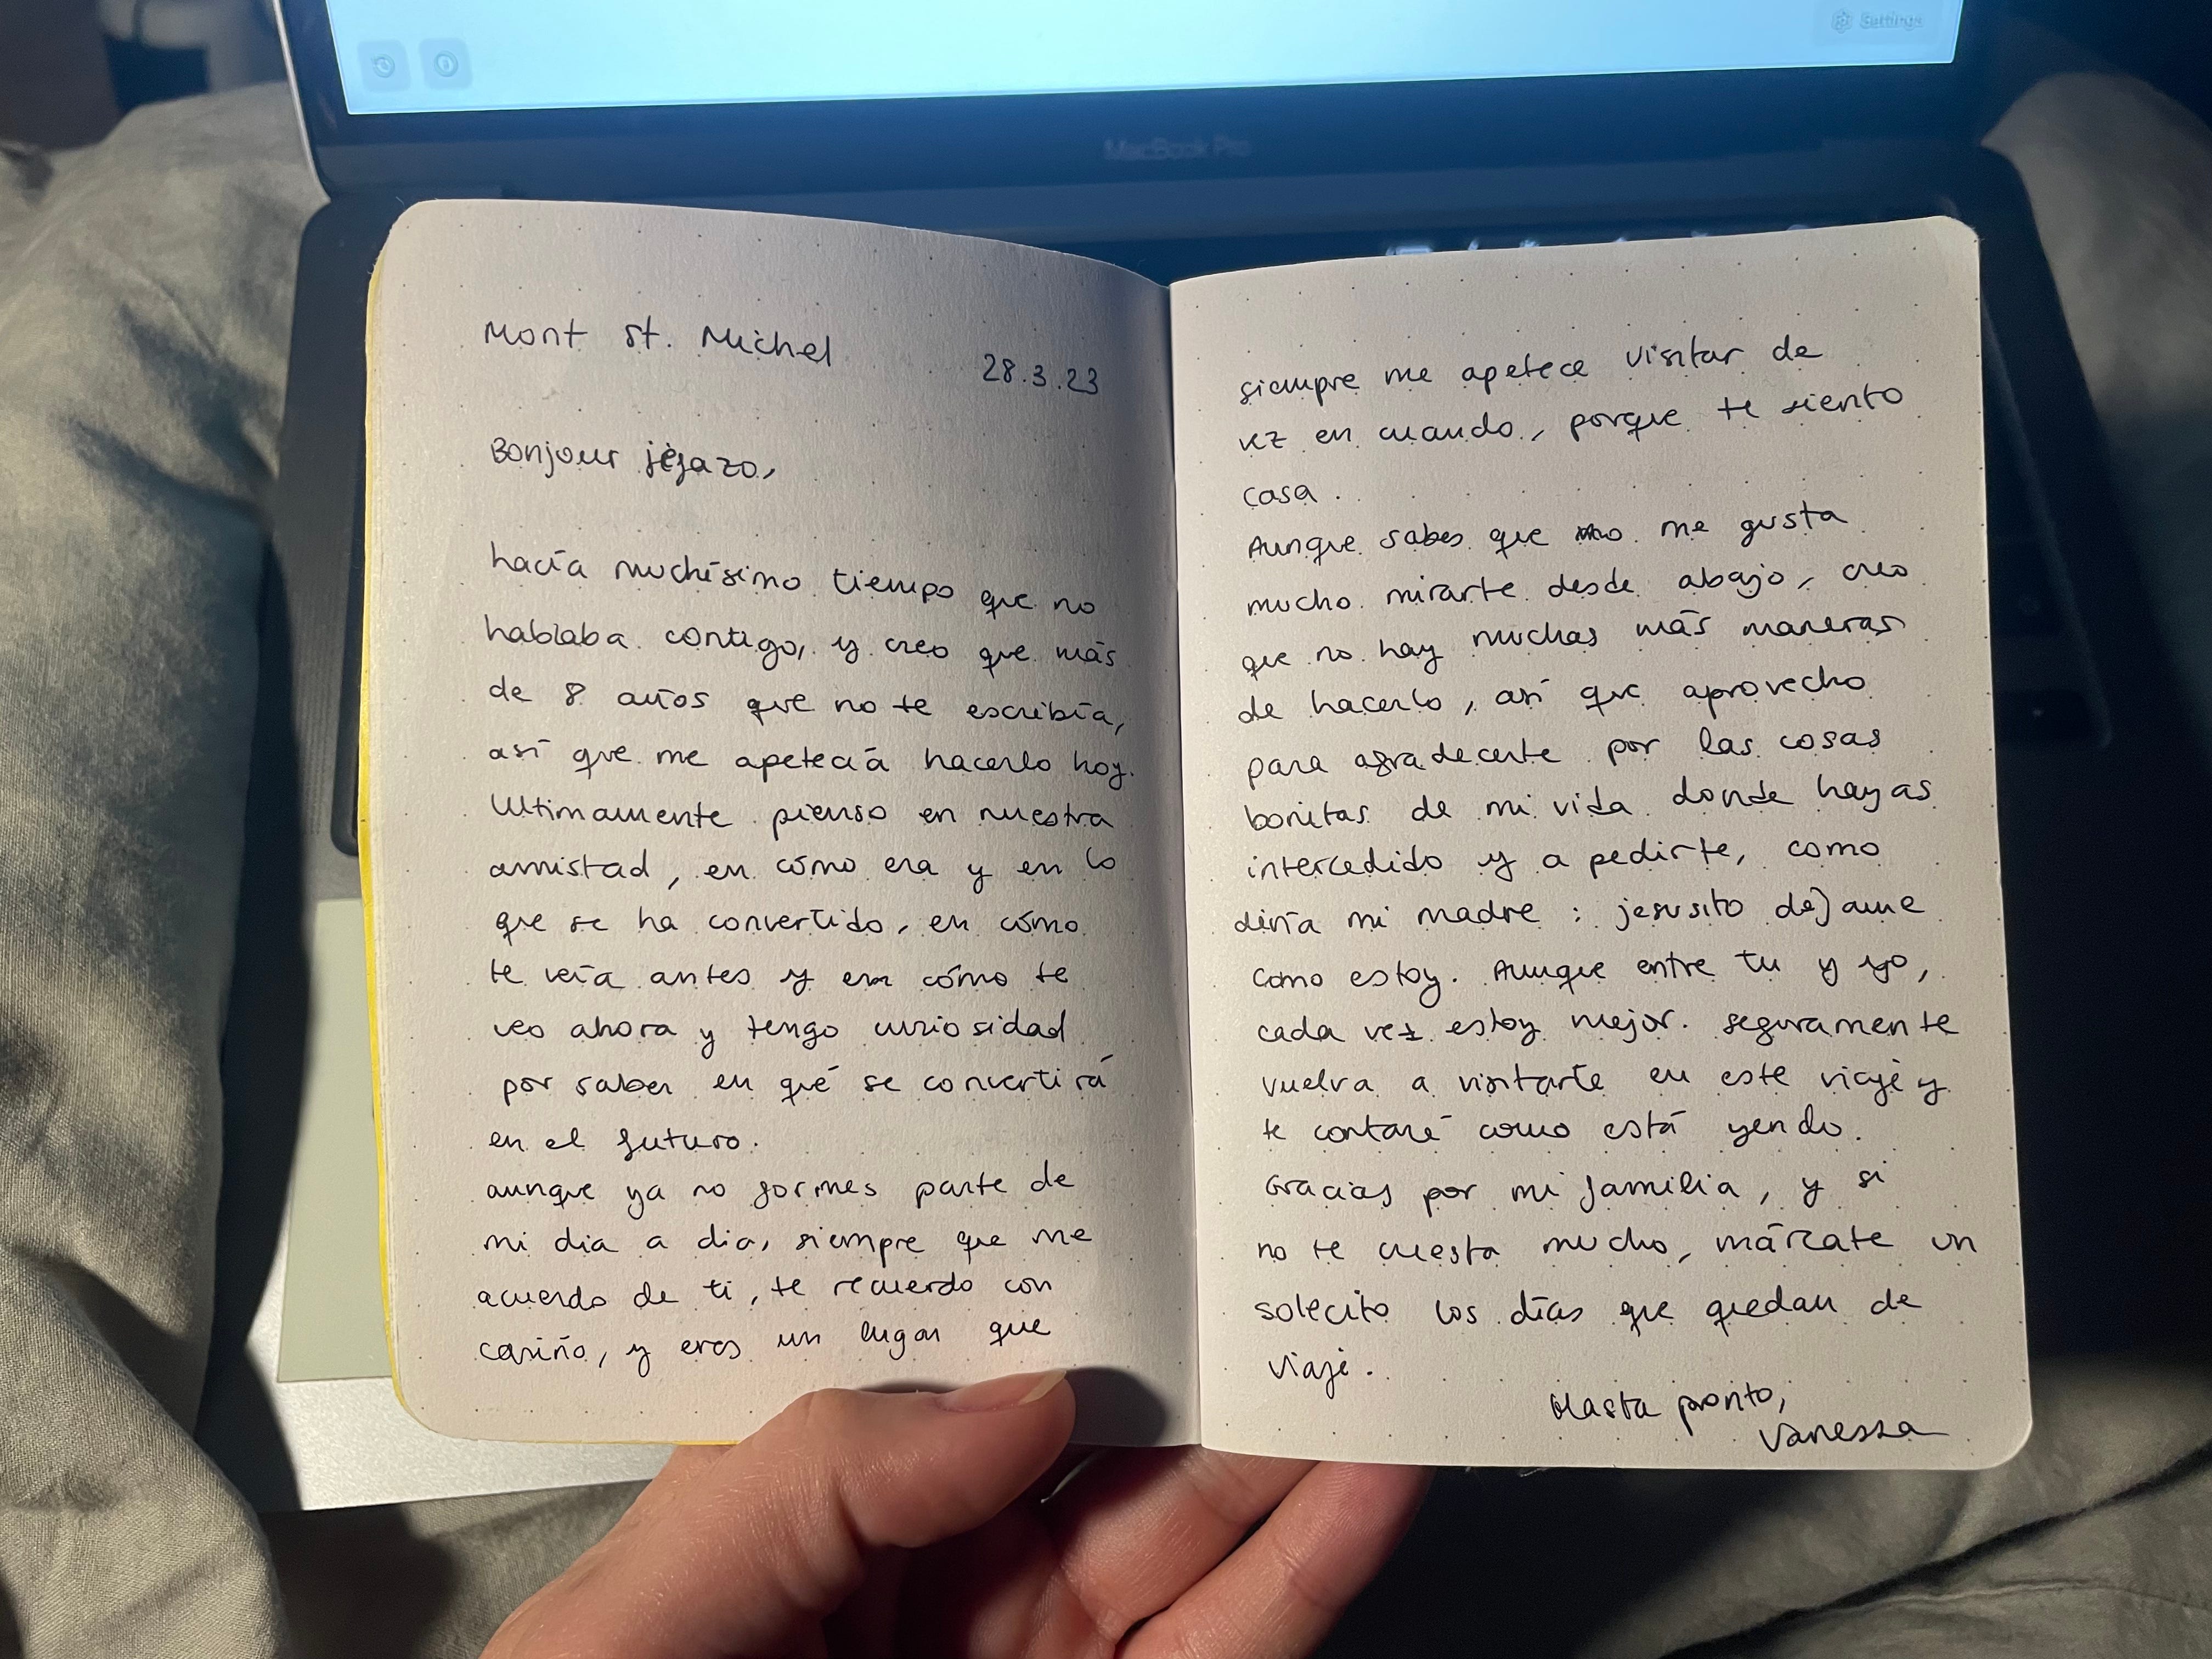 Settings
MacBook Pro
Mont St. Michel
28.3.23
Bonjour jefazo,
hacía muchísimo tiempo que no
hablaba contigo, y creo que más
de 8 años que no te escribía,
así que me apetecía hacerlo hoy.
Ultimamente pienso en nuestra
amistad, en cómo era y en lo
que se ha convertido, en cómo
te veía antes y en cómo te
veo ahora y tengo curiosidad
por saber en qué se convertirá
en el futuro.
aunque ya no formes parte de
mi dia a dia, siempre que me
acuerdo de ti, te recuerdo con
cariño, y eres un lugar que
siempre me apetece visitar de
vez en cuando, porque te siento
casa.
Aunque sabes que no me gusta
mucho mirarte desde abajo, creo
que no hay muchas más maneras
de hacerlo, así que aprovecho
para agradecerte por las cosas
bonitas de mi vida donde hayas
intercedido y a pedirte, como
diría mi madre: jesusito dejame
como estoy. Aunque entre tu y yo,
cada vez estoy mejor. seguramente
vuelva a visitarte en este viaje y
te contaré como está yendo.
Gracias por mi familia, y si
no te cuesta mucho, márcate un
solecito los días que quedan de
viaje.
Hasta pronto,
Vanessa